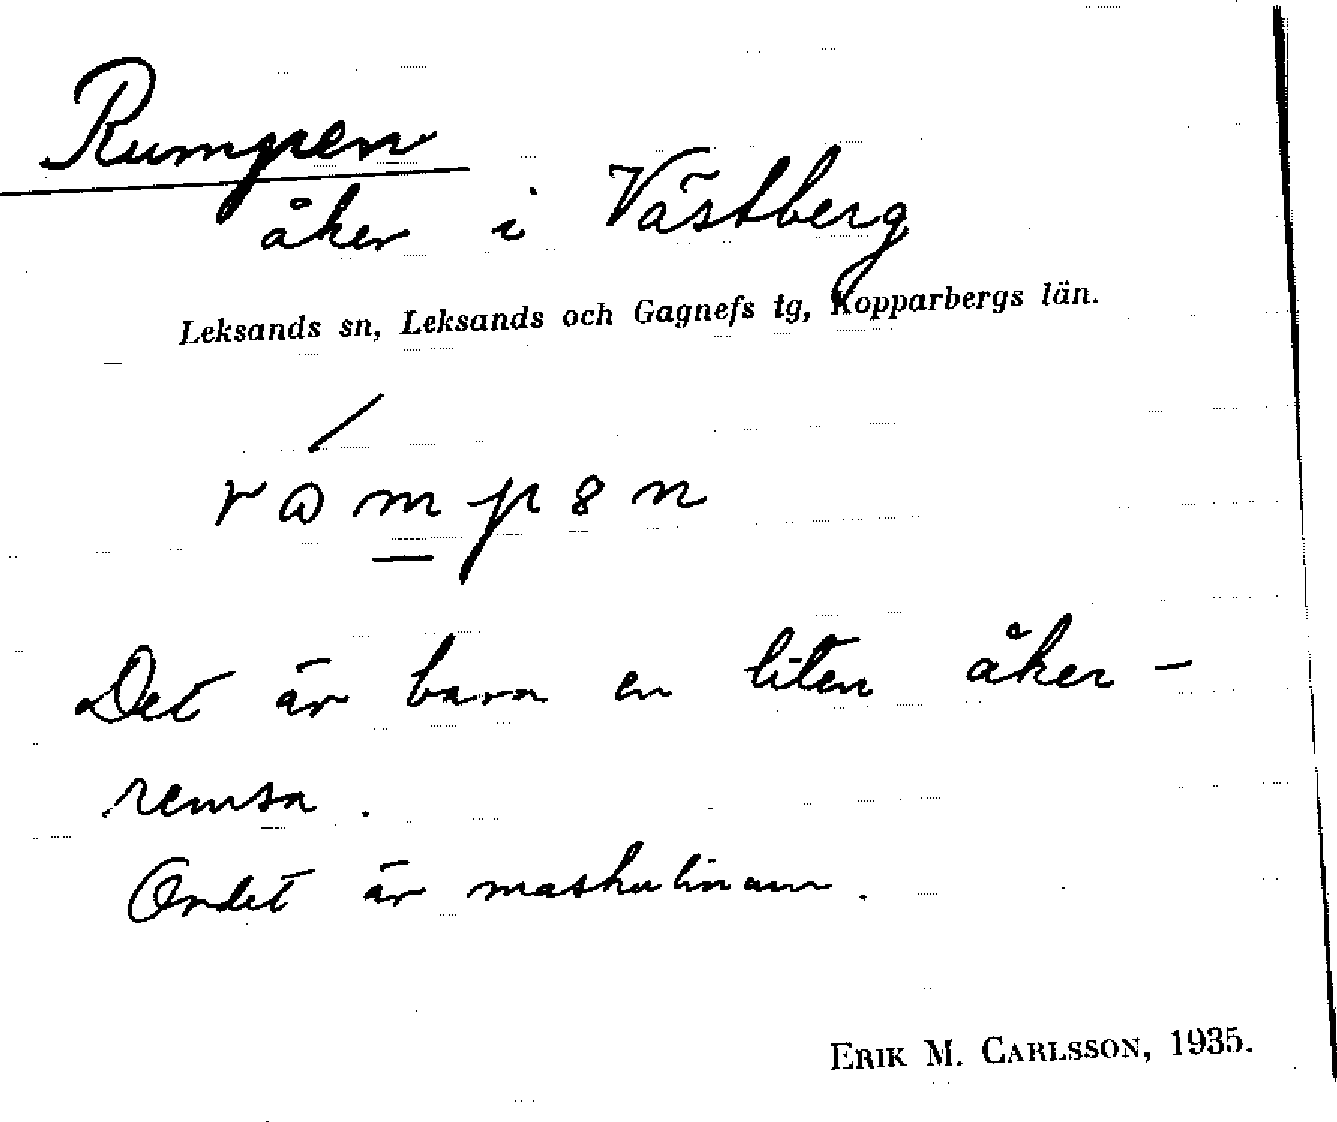 Rumpen
åker i Västberg
Leksands sn, Leksands och Gagnefs tg, Kopparbergs län.
Det är bara en liten åker-
remsa.
Ordet är maskulinum.
ERIK M. CARLSSON, 1935.